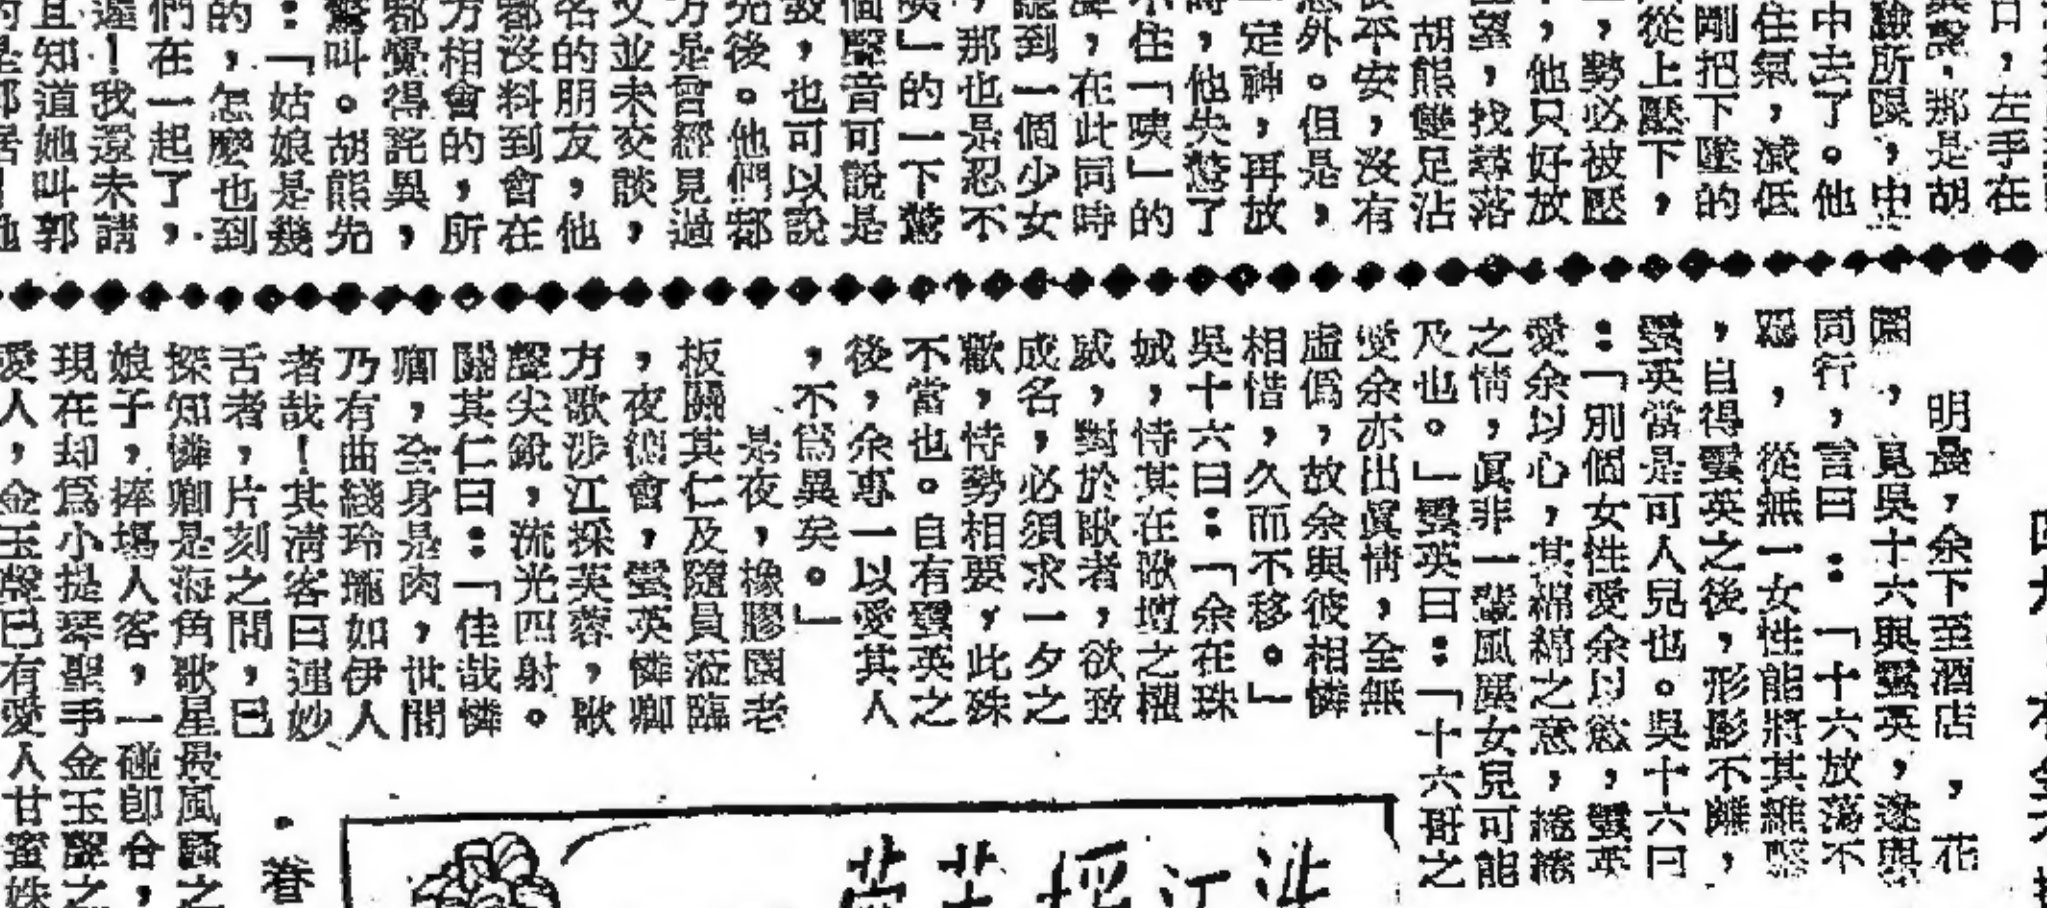 日，左手在
異聲，那是胡
驗所限，中
中去了。他
住氣，減低
剛把下墜的
從上壓下，
，他只好放
，勢必被壓
望，找尋落
胡熊雙足沾
平安，沒有
意外。但是，
定神，再放
時，他失驚了
住「咦」的
聲，在此同時
聽到一個少女
，那也是忍不
咦」的一下驚
個聲音可說是
致，也可以說
先後。他們都
方是曾經見過
文並未交談，
名的朋友，他
都沒料到會在
方相會的，所
都覺得詫異，
驚叫。胡熊先
：「姑娘是幾
的，怎麼也到
們在一起了，
！我還未請
且知道她叫郭
明晨，余下至酒店，花
園，見吳十六與靈英，遂與
同行，言曰：「十六放蕩不
羈，從無一女性能將其維繫
，自得靈英之後，形影不離，
靈英當是可人兒也。吳十六曰
：「別個女性愛余以慾，靈英
愛余以心，其綿綿之意，綣綣
之情，眞非一輩風塵女兒可能
及也。」靈英曰：「十六哥之
愛余亦出眞情，全無
虛僞，故余與彼相憐
相惜，久而不移。」
吳十六曰：「余在珠
城，恃其在歌壇之權
威，對於歌者，欲致
成名，必須求一夕之
歡，恃勢相要，此殊
不當也。自有靈英之
後，余專一以愛其人
，不爲異矣。」
是夜，橡膠園老
板關其仁及隨員蒞臨
，夜總會，靈英憐卿
方歌涉江採芙蓉，歌
聲尖銳，流光四射。
關其仁曰：「佳哉憐
卿，全身是肉，世間
乃有曲綫玲瓏如伊人
者哉！其淸客曰連妙
舌者，片刻之間，已
探知憐卿是海角歌星最風騷之
娘子，捧塲人客，一碰卽合，
現在却爲小提琴聖手金玉聲之
愛人，金玉聲已有愛人甘蜜姝
涉江採芙蓉